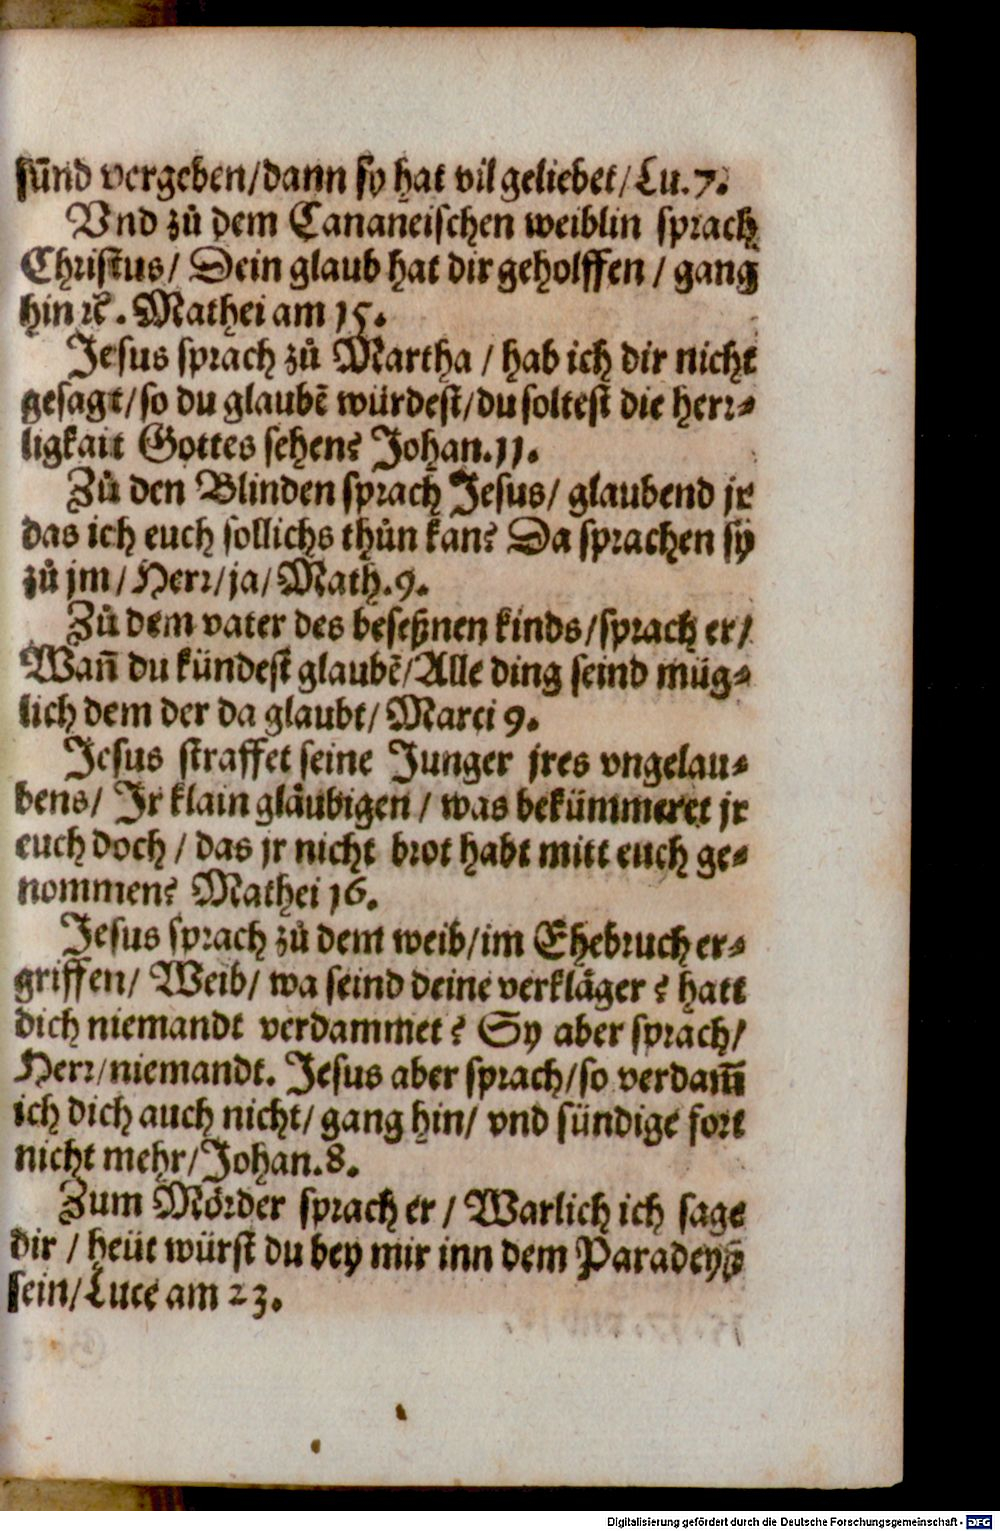 sünd vergeben/dann sy hat vil geliebet/Lu.7.
Vnd zů dem Cananeischen weiblin sprach
Christus/ Dein glaub hat dir geholffen / gang
hin ꝛc̃. Mathei am 15.
Jesus sprach zů Martha / hab ich dir nicht
gesagt/so du glaubẽ würdest/du soltest die herr⸗
ligkait Gottes sehen? Johan.11.
Zů den Blinden sprach Jesus/ glaubend jr
das ich euch sollichs thůn kan? Da sprachen sy
zů jm/Herr/ja/Math.9.
Zů dem vater des beseßnen kinds/sprach er/
Wañ du kündest glaubẽ/Alle ding seind müg⸗
lich dem der da glaubt/ Marci 9.
Jesus straffet seine Junger jres vngelau⸗
bens/ Jr klain gläubigen / was bekümmeret jr
euch doch / das jr nicht brot habt mitt euch ge⸗
nommen? Mathei 16.
Jesus sprach zů dem weib/im Ehebruch er⸗
griffen/ Weib/ wa seind deine verkläger? hatt
dich niemandt verdammet? Sy aber sprach/
Herr/niemandt. Jesus aber sprach/so verdam̃
ich dich auch nicht/ gang hin/ vnd sündige fort
nicht mehr/Johan.8.
Zum Mörder sprach er / Warlich ich sage
dir / heüt würst du bey mir inn dem Paradeyß
sein/Luce am 23.
Digitalisierung gefördert durch die Deutsche Forschungsgemeinschaft - DFG